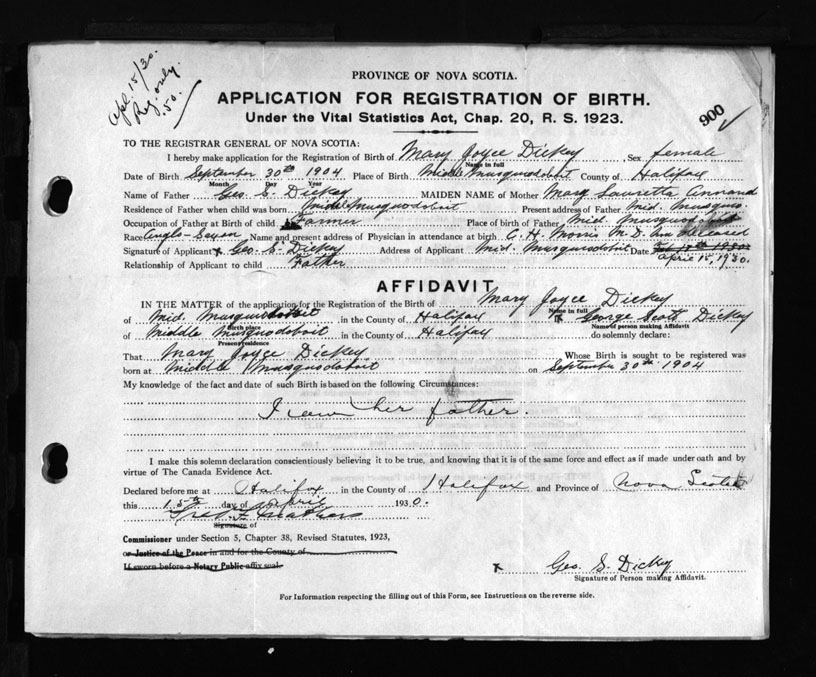 Apl. 15/30.
Reg. only.
.50.
900
PROVINCE OF NOVA SCOTIA.
APPLICATION FOR REGISTRATION OF BIRTH.
Under the Vital Statistics Act, Chap. 20, R. S. 1923.
TO THE REGISTRAR GENERAL OF NOVA SCOTIA:
I hereby make application for the Registration of Birth of Mary Joyce Dickey Sex female
Name in full
Date of Birth September 30th 1904 Place of Birth Middle Musquodoboit County of Halifax
Month Day Year
Name of Father Geo. S. Dickey MAIDEN NAME of Mother Mary Lauretta Annand
Residence of Father when child was born Middle Musquodoboit Present address of Father Mid. Musquo
Occupation of Father at Birth of child Farmer Place of birth of Father Mid. Musquodoboit
Race Anglo-Saxon Name and present address of Physician in attendance at birth C. H. Morris M. D.
Signature of Applicant x Geo. S. Dickey Address of Applicant Mid. Musquodoboit Date
April 15, 1930.
Relationship of Applicant to child Father
AFFIDAVIT
IN THE MATTER of the application for the Registration of the Birth of Mary Joyce Dickey
Name in full
of Mid. Musquodoboit in the County of Halifax I, George Scott Dickey
Birth place Name of person making Affidavit
of Middle Musquodoboit in the County of Halifax do solemnly declare:
Present residence
That Mary Joyce Dickey Whose Birth is sought to be registered was
born at Middle Musquodoboit on September 30th 1904
My knowledge of the fact and date of such Birth is based on the following Circumstances:
I am her father.
I make this solemn declaration conscientiously believing it to be true, and knowing that it is of the same force and effect as if made under oath and by
virtue of The Canada Evidence Act.
Declared before me at Halifax in the County of Halifax and Province of Nova Scotia
this 15th day of April 1930.
Fred. F. Mathers
Signature of
Commissioner under Section 5, Chapter 38, Revised Statutes, 1923,
or Justice of the Peace in and for the County of
If sworn before a Notary Public affix seal.
x Geo. S. Dickey
Signature of Person making Affidavit.
For Information respecting the filling out of this Form, see Instructions on the reverse side.